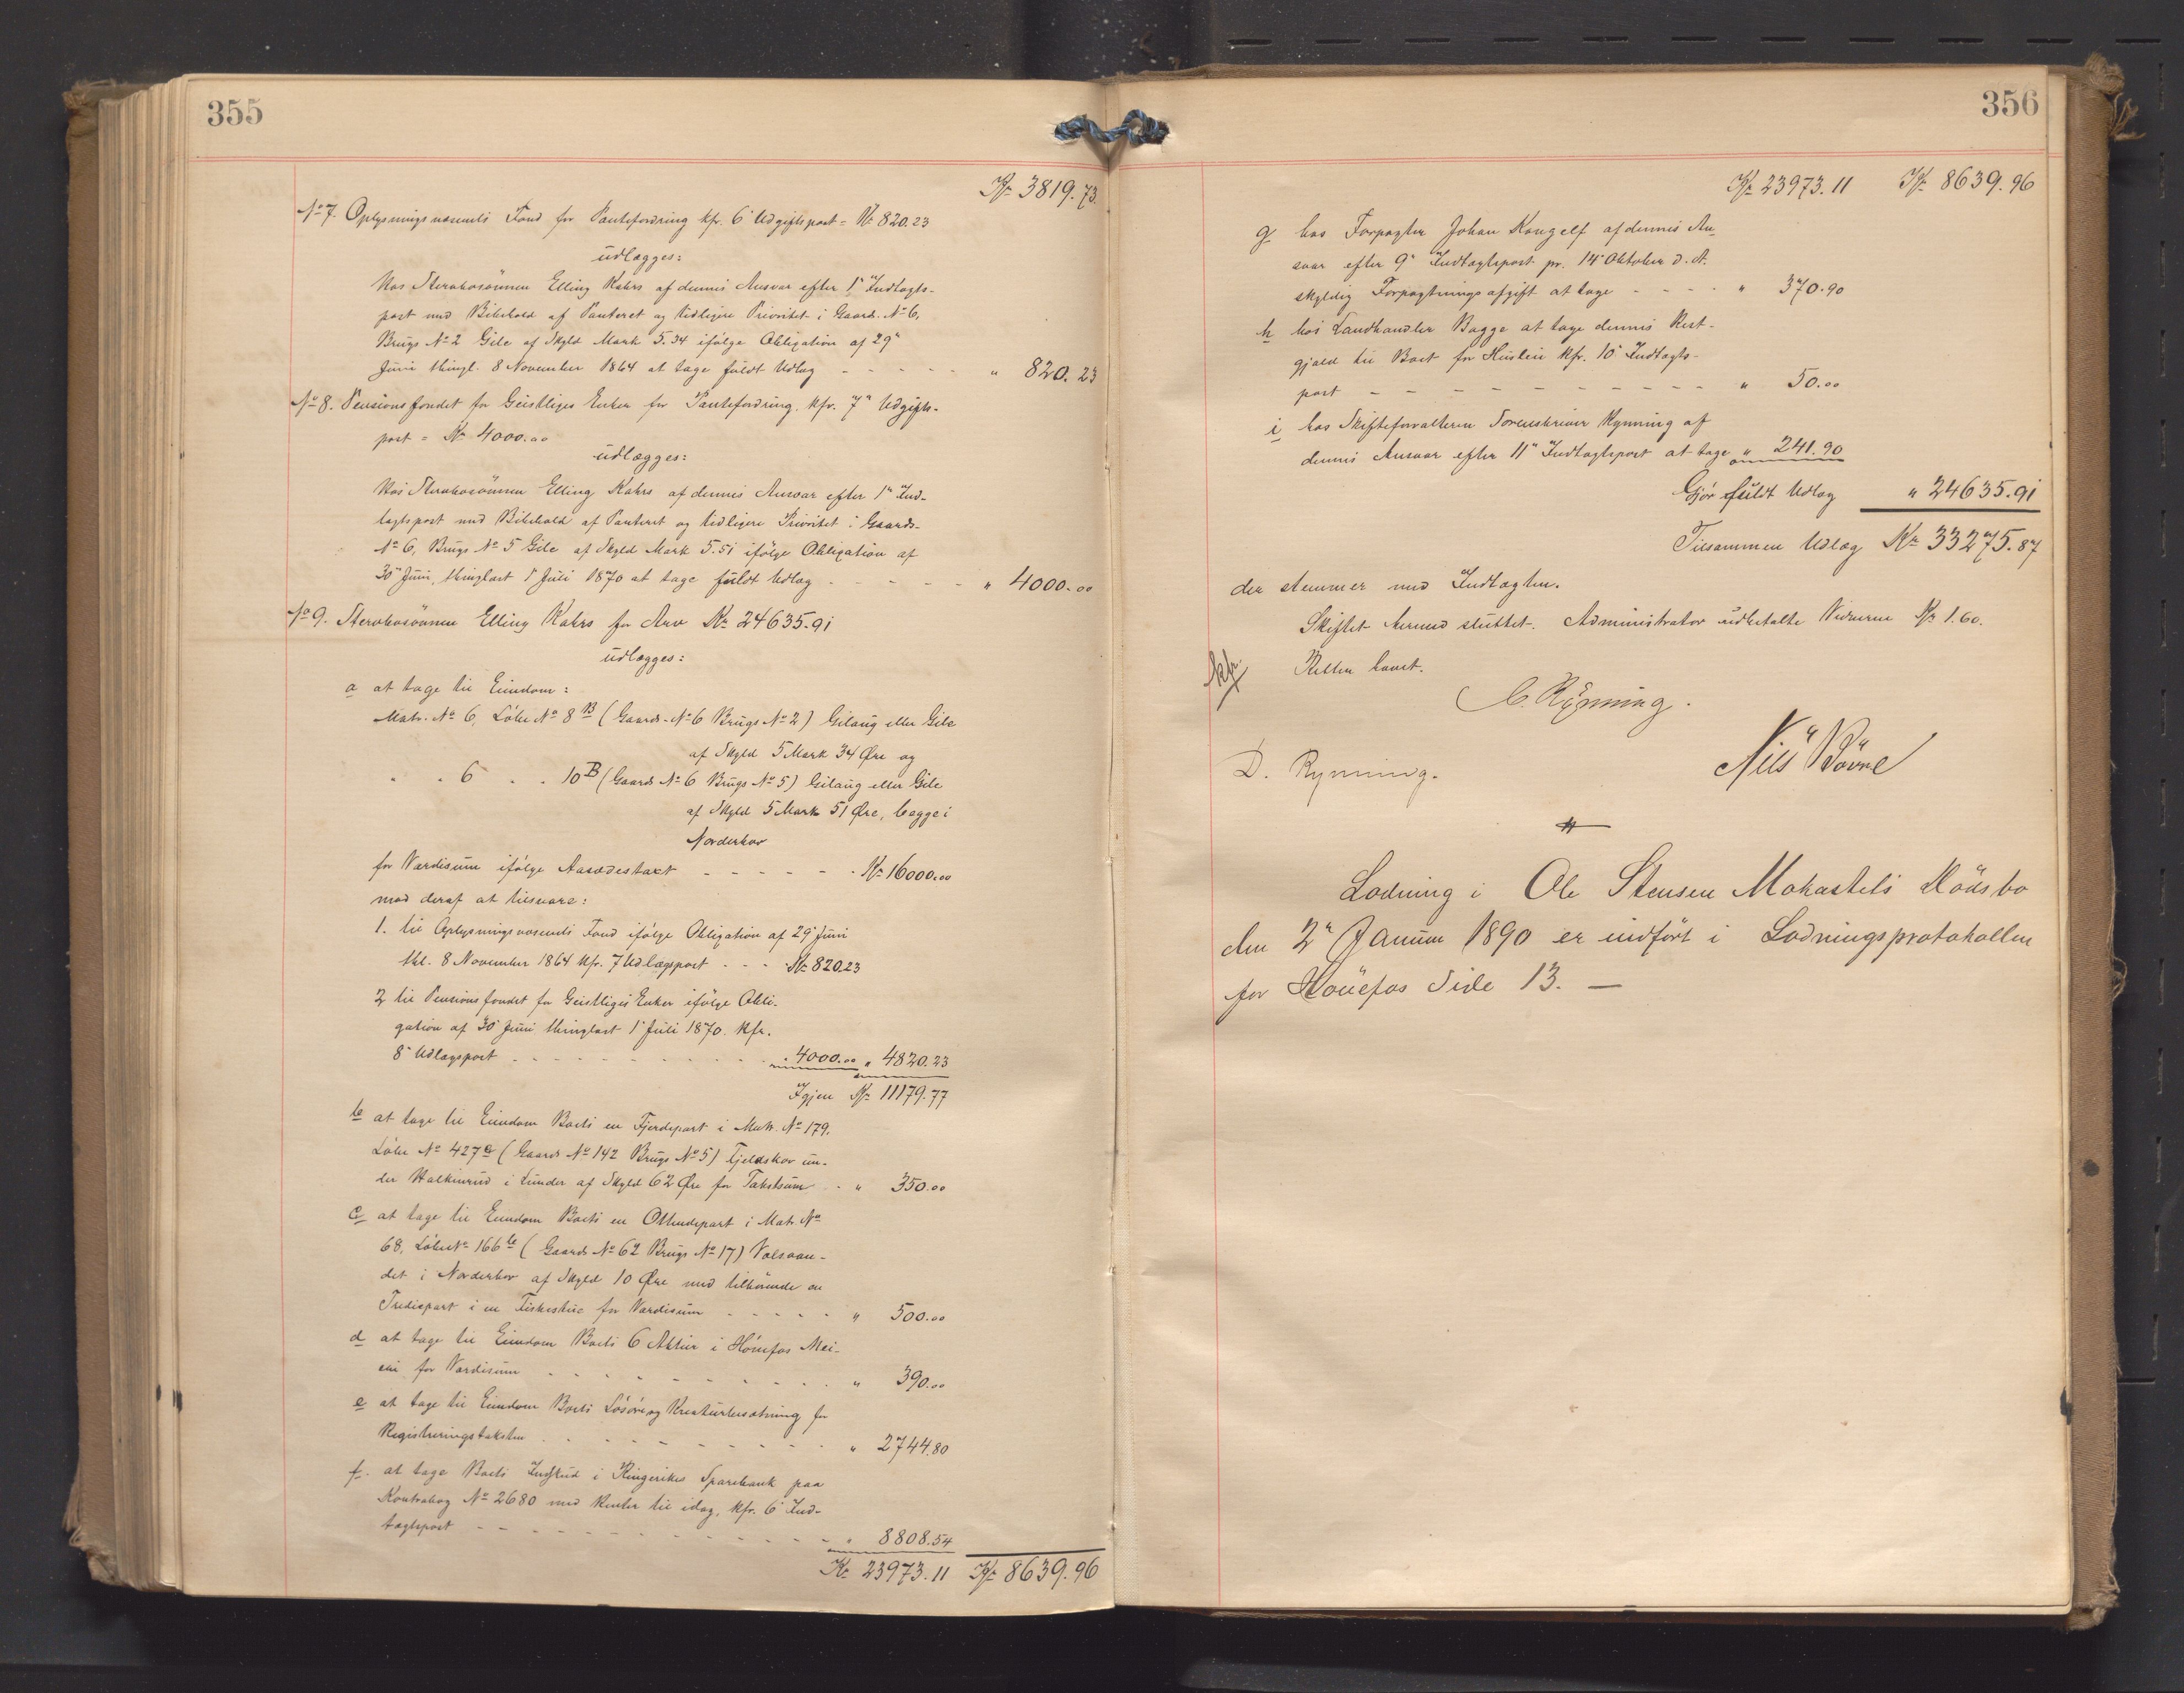 355
Kr 3819.73.
No 7. Oplysningsvæsenets Fond for Pantefordring kfr. 6" Udgiftspost = Kr 820.23
udlægges:
Hos Stervbosønnen Elling Kahrs af dennes Ansvar efter 1" Indtægts-
post med Bibehold af Panteret og tidligere Prioritet i Gaards-No 6,
Brugs No 2 Gile af Skyld Mark 5.34 ifølge Obligation af 29"
Juni thingl. 8 November 1864 at tage fuldt Udlæg - - - - - " 820.23
No 8. Pensionsfondet for Geistliges Enker for Pantefordring, kfr. 7" Udgifts-
post = Kr 4000.00
udlægges:
Hos Stervbosønnen Elling Kahrs af dennes Ansvar efter 1" Ind-
tægtspost med Bibehold af Panteret og tidligere Prioritet i Gaards-
No 6, Brugs No 5 Gile af Skyld Mark 5.51 ifølge Obligation af
30" Juni, thinglæst 1" Juli 1870 at tage fuldt Udlæg - - - - - " 4000.00
No 9. Stervbosønnen Elling Kahrs for Arv Kr 24635.91
udlægges:
a at tage til Eiendom:
Matr. No 6, Løbe No 8B (Gaards-No 6 Brugs No 2) Gilaug eller Gile
af Skyld 5 Mark 34 Øre og
" " 6 " " 10B (Gaards No 6 Brugs No 5) Gilaug eller Gile
af Skyld 5 Mark 51 Øre, begge i
Norderhov
for Værdisum ifølge Aasædestaxt - - - - - - Kr 16000.00
mod deraf at tilsvare:
1. til Oplysningsvæsenets Fond ifølge Obligation af 29" Juni
thl. 8 November 1864 kfr. 7 Udlægspost - - - Kr 820.23
2 til Pensionsfondet for Geistliges Enker ifølge Obli-
gation af 30" Juni thinglæst 1" Juli 1870. kfr.
8" Udlægspost - - - - - - - - " 4000.00 " 4820.23
Igjen Kr 11179.77
b at tage til Eiendom Boets en Fjerdepart i Matr. No 179,
Løbe No 427a (Gaards No 142 Brugs No 5) Fjeldskov un-
der Halkinrud i Lunder af Skyld 62 Øre for Takstsum - " 350.00
c at tage til Eiendom Boets en Ottendepart i Matr No
68, Løbe No 166b (Gaards No 62 Brugs No 17) Vælsvan-
det i Norderhov af Skyld 10 Øre med tilhørende en
Trediepart i en Fiskestue for Værdisum - - - - - " 500.00
d at tage til Eiendom Boets 6 Aktier i Hønefos Mei-
eri for Værdisum - - - - - - - - - " 390.00
e at tage til Eiendom Boets Løsøre og Kreaturbesætning for
Registreringstaksten - - - - - - - - - " 2744.80
f. at tage Boets Indskud i Ringerikes Sparebank paa
Kontrabog No 2680 med Renter til idag, kfr. 6" Ind-
tægtspost - - - - - - - - - - - " 8808.54
Kr 23973.11 Kr 8639.96
356
Kr 23973.11 Kr 8639.96
g hos Forpagter Johan Kongelf af dennes An-
svar efter 9" Indtægtspost pr. 14" Oktober d. A.
skyldig Forpagtningsafgift at tage - - - - " 370.90
h hos Landhandler Bagge at tage dennes Rest-
gjæld til Boet for Husleie kfr. 10" Indtægts-
post - - - - - - - - - - - " 50.00
i hos Skifteforvalteren Sorenskriver Rynning af
dennes Ansvar efter 11" Indtægtspost at tage " 241.90
Gjør fuldt Udlæg " 24635.91
Tilsammen Udlæg Kr 33275.87
der stemmer med Indtægten.
Skiftet hermed sluttet. Administrator udbetalte Vidnerne Kr 1.60.
kfr.
Retten hævet.
C. Rynning.
D. Rynning.
Lodning i Ole Stensen Mokastets Dödsbo
den 2" Januar 1890 er indført i Lodningsprotokollen
for Hönefos Side 13. —